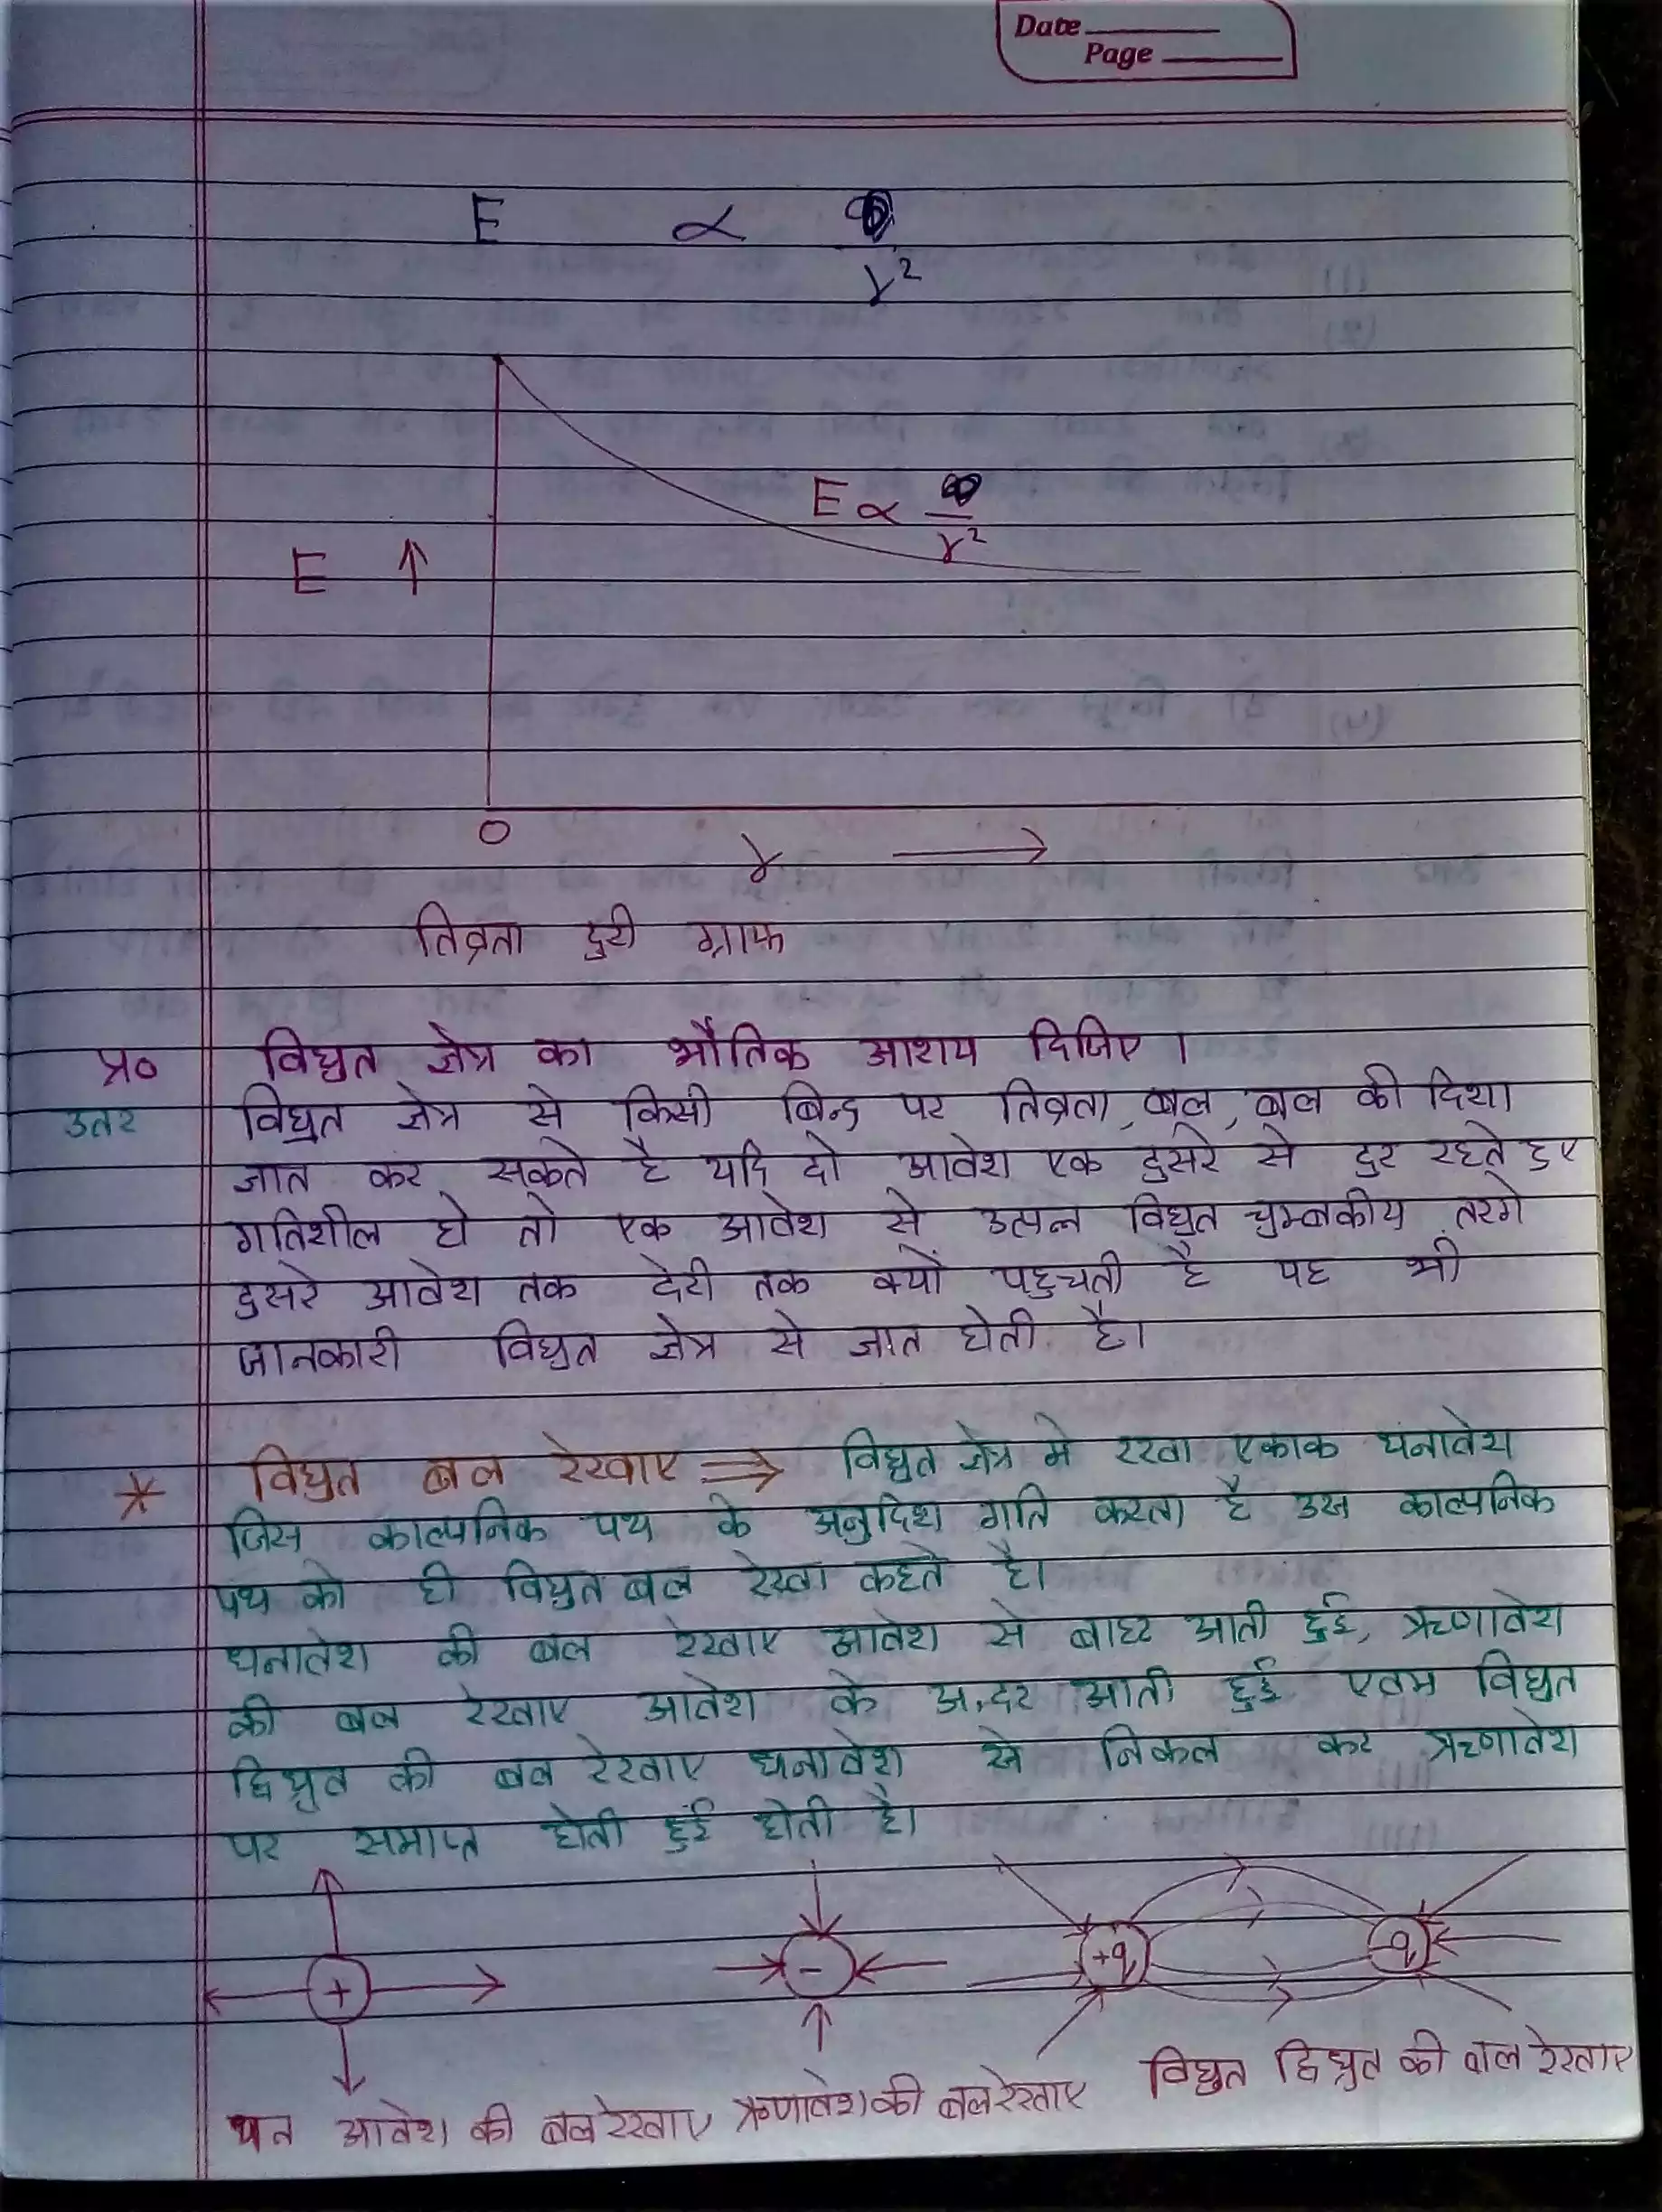 Date
Page
E ∝ / r²
E ∝ / r²
E ↑
O
r →
तिव्रता दुरी ग्राफ
प्र० विघुत क्षेत्र का भौतिक आशय दिजिए ।
उतर विघुत क्षेत्र से किसी बिन्दु पर तिव्रता, बल, बल की दिशा
ज्ञात कर सकते है यदि दो आवेश एक दुसरे से दुर रहते हुए
गतिशील हो तो एक आवेश से उत्पन्न विघुत चुम्बकीय तरंगे
दुसरे आवेश तक देरी तक क्यों पहुचती है यह भी
जानकारी विघुत क्षेत्र से ज्ञात होती है।
* विघुत बल रेखाए ⇒ विघुत क्षेत्र मे रखा एकाक धनावेश
जिस काल्पनिक पथ के अनुदिश गति करता है उस काल्पनिक
पथ को ही विघुत बल रेखा कहते है।
धनावेश की बल रेखाए आवेश से बाहर आती हुई, ऋणावेश
की बल रेखाए आवेश के अ.दर आती हुई एवम विघुत
द्विघ्रुव की बल रेखाए धनावेश से निकल कर ऋणावेश
पर समाप्त होती हुई होती है।
+
-
+q
-q
धन आवेश की बल रेखाए
ऋणावेश की बल रेखाए
विघुत द्विघ्रुत की बल रेखाए